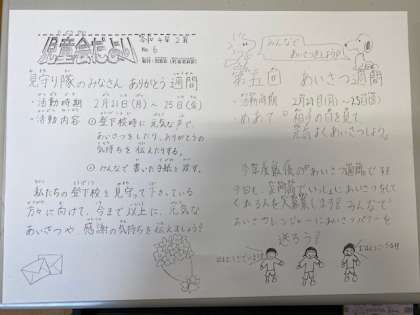 児童会だより
令和4年2月
No.6
見守り隊のみなさん ありがとう週間
・活動時期 2月21日(月)〜25日(金)
・活動内容 ①登下校時に元気な声で、
あいさつをしたり、ありがとうの
気持ちを伝えたりする。
②みんなで書いた手紙を渡す。
私たちの登下校を見守って下さっている
方々に向けて、今まで以上に、元気な
あいさつや、感謝の気持ちを伝えましょう!
みんなで
あいさつをしよう!
第五回 あいさつ週間
・活動時期 2月21日(月)〜25日(金)
・めあて 「相手の目を見て
元気よくあいさつしよう。」
今年度最後のあいさつ週間です
今回も、玄関前でいっしょにあいさつをして
くれる人を大募集します!みんなで
あいさつパワーを
送ろう!
おはようございます
おはようございます